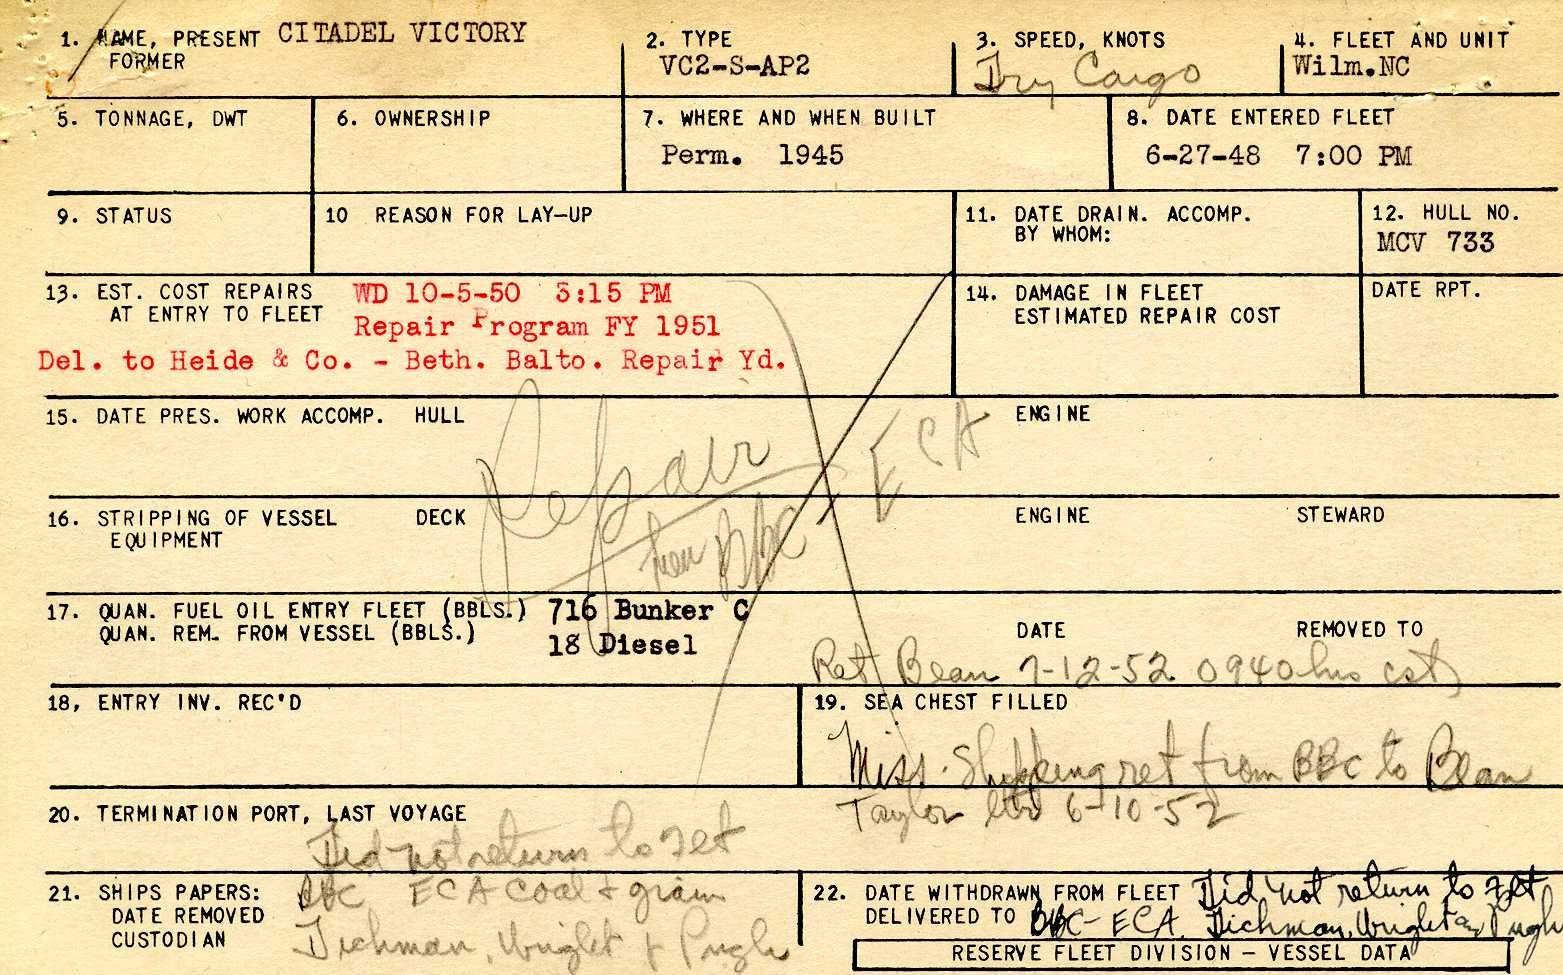 1. NAME, PRESENT CITADEL VICTORY
FORMER
2. TYPE
VC2-S-AP2
3. SPEED, KNOTS
Dry Cargo
4. FLEET AND UNIT
Wilm.NC
5. TONNAGE, DWT
6. OWNERSHIP
7. WHERE AND WHEN BUILT
Perm. 1945
8. DATE ENTERED FLEET
6-27-48 7:00 PM
9. STATUS
10 REASON FOR LAY-UP
11. DATE DRAIN. ACCOMP.
BY WHOM:
12. HULL NO.
MCV 733
13. EST. COST REPAIRS
AT ENTRY TO FLEET
WD 10-5-50 3:15 PM
Repair Program FY 1951
Del. to Heide & Co. - Beth. Balto. Repair Yd.
14. DAMAGE IN FLEET
ESTIMATED REPAIR COST
DATE RPT.
15. DATE PRES. WORK ACCOMP. HULL
ENGINE
Repair
then BBC - ECA
16. STRIPPING OF VESSEL DECK
EQUIPMENT
ENGINE
STEWARD
17. QUAN. FUEL OIL ENTRY FLEET (BBLS.) 716 Bunker C
QUAN. REM. FROM VESSEL (BBLS.) 18 Diesel
DATE
REMOVED TO
Ret Beau 7-12-52 0940 hrs cst
18, ENTRY INV. REC'D
19. SEA CHEST FILLED
Miss. Shipping ret from BBC to Beau
Taylor ltr 6-10-52
20. TERMINATION PORT, LAST VOYAGE
Did not return to Flt
BBC ECA coal & grain
Dichman, Wright & Pugh
21. SHIPS PAPERS:
DATE REMOVED
CUSTODIAN
22. DATE WITHDRAWN FROM FLEET Did not return to Flt
DELIVERED TO BBC-ECA. Dichman, Wright & Pugh
RESERVE FLEET DIVISION - VESSEL DATA